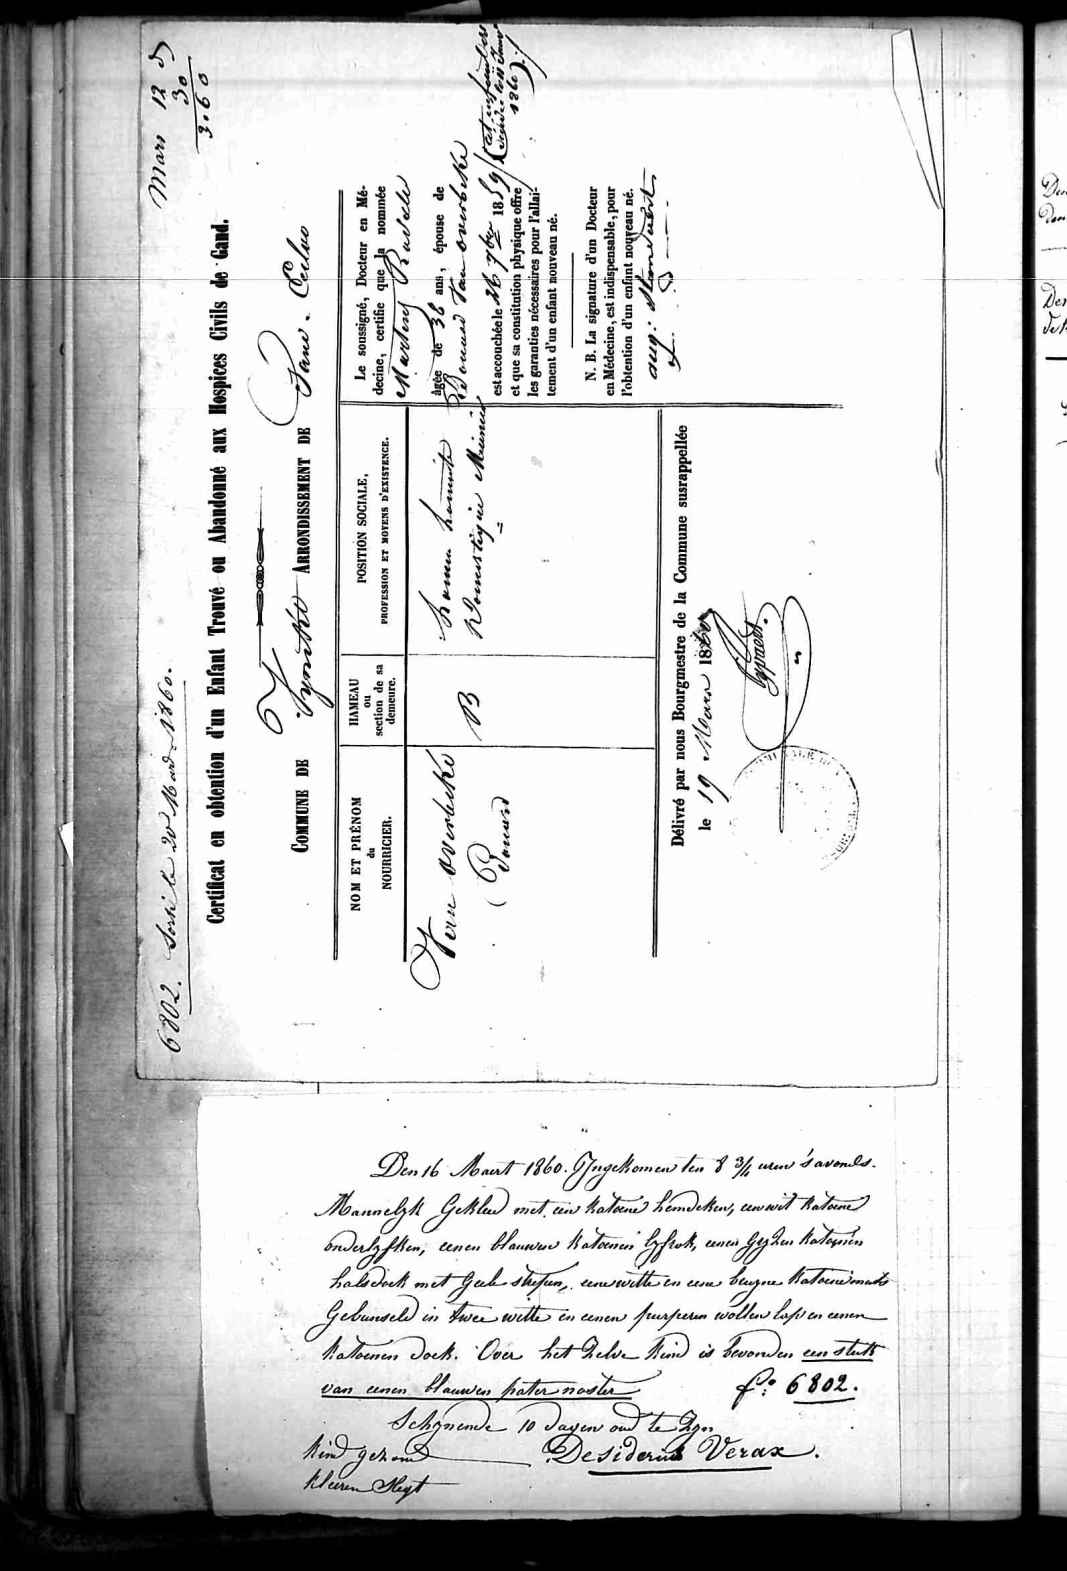 6802. Sorti le 20 Mard 1860.
Mars 12 J
30
3.60
Certificat en obtention d'un Enfant Trouvé ou Abandonné aux Hospices Civils de Gand.
COMMUNE DE ARRONDISSEMENT DE
NOM ET PRÉNOM
du
NOURRICIER.
HAMEAU
ou
section de sa
demeure.
POSITION SOCIALE,
PROFESSION ET MOYENS D'EXISTENCE.
overbeke
B
Domestique Meunier
Le soussigné, Docteur en Mé-
decine, certifie que la nommée
Martens
âgée de 36 ans, épouse de
Van overbeke
est accouchée le 26 7bre 1859
et que sa constitution physique offre
les garanties nécessaires pour l'allai-
tement d'un enfant nouveau né.
N. B. La signature d'un Docteur
en Médecine, est indispensable, pour
l'obtention d'un enfant nouveau né.
Délivré par nous Bourgmestre de la Commune susrappellée
le 19 Mars 1860
Den 16 Maert 1860. Ingekomen ten 8 3/4 uren s'avonds.
Mannelyk Gekleed met een katoene hemdeken, een wit katoene
onderlyfken, eenen blauwen katoenen lyfrok, eenen gryzen katoenen
halsdoek met Geele strepen, eene witte en eene bruyne katoene muts
Gebunseld in twee witte en eenen purperen wollen lap en eenen
katoenen doek. Over het Zelve kind is bevonden een stuk
van eenen blauwen pater noster fo: 6802.
Schynende 10 dagen oud te Zyn
kind gezond Desiderius Verax.
kleeren Slegt